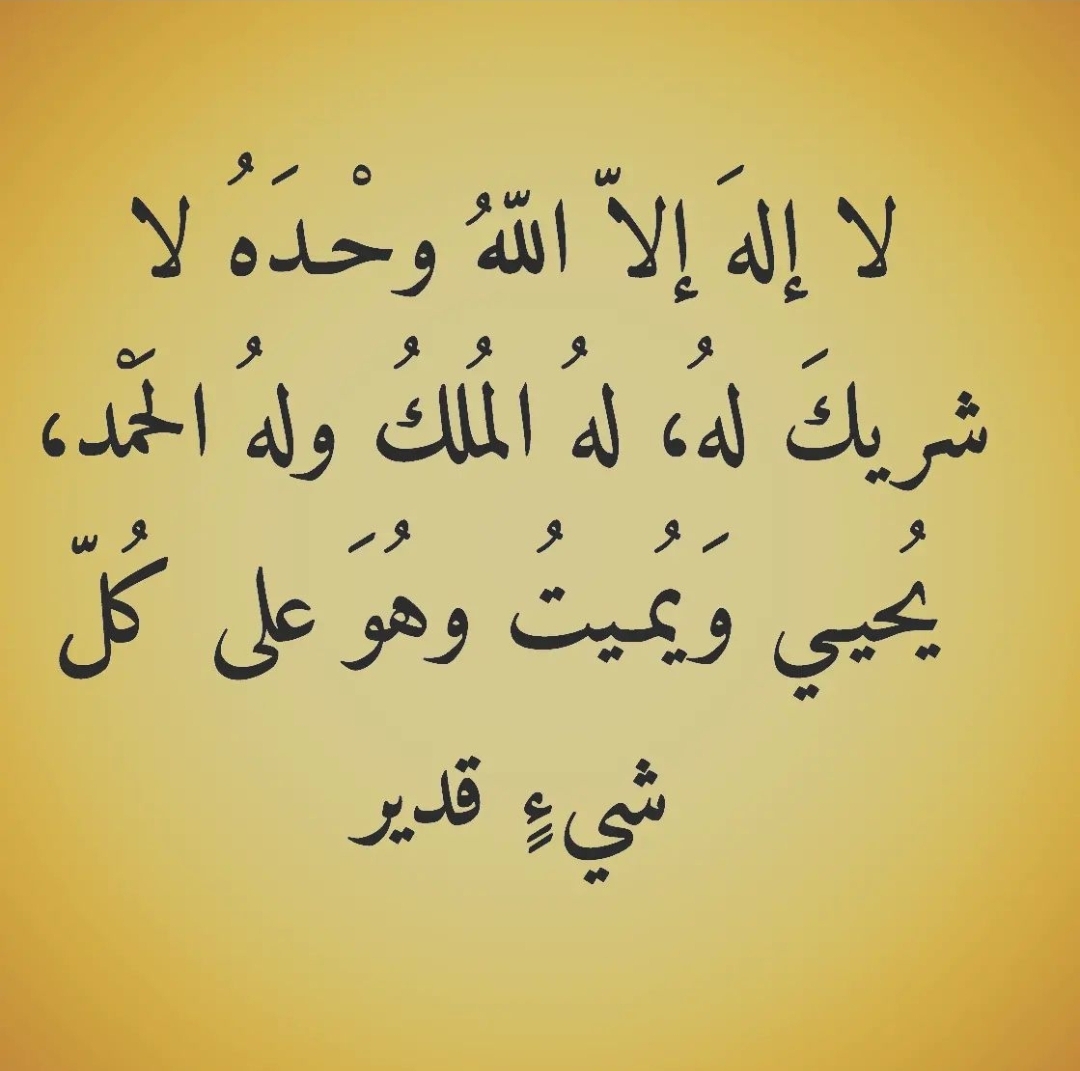 لا إلهَ إلاّ اللّهُ وحْدَهُ لا
شريكَ لهُ، لهُ المُلكُ ولهُ الحْمد،
يُحيـي وَيُمـيتُ وهُوَ على كُلّ
شيءٍ قدير